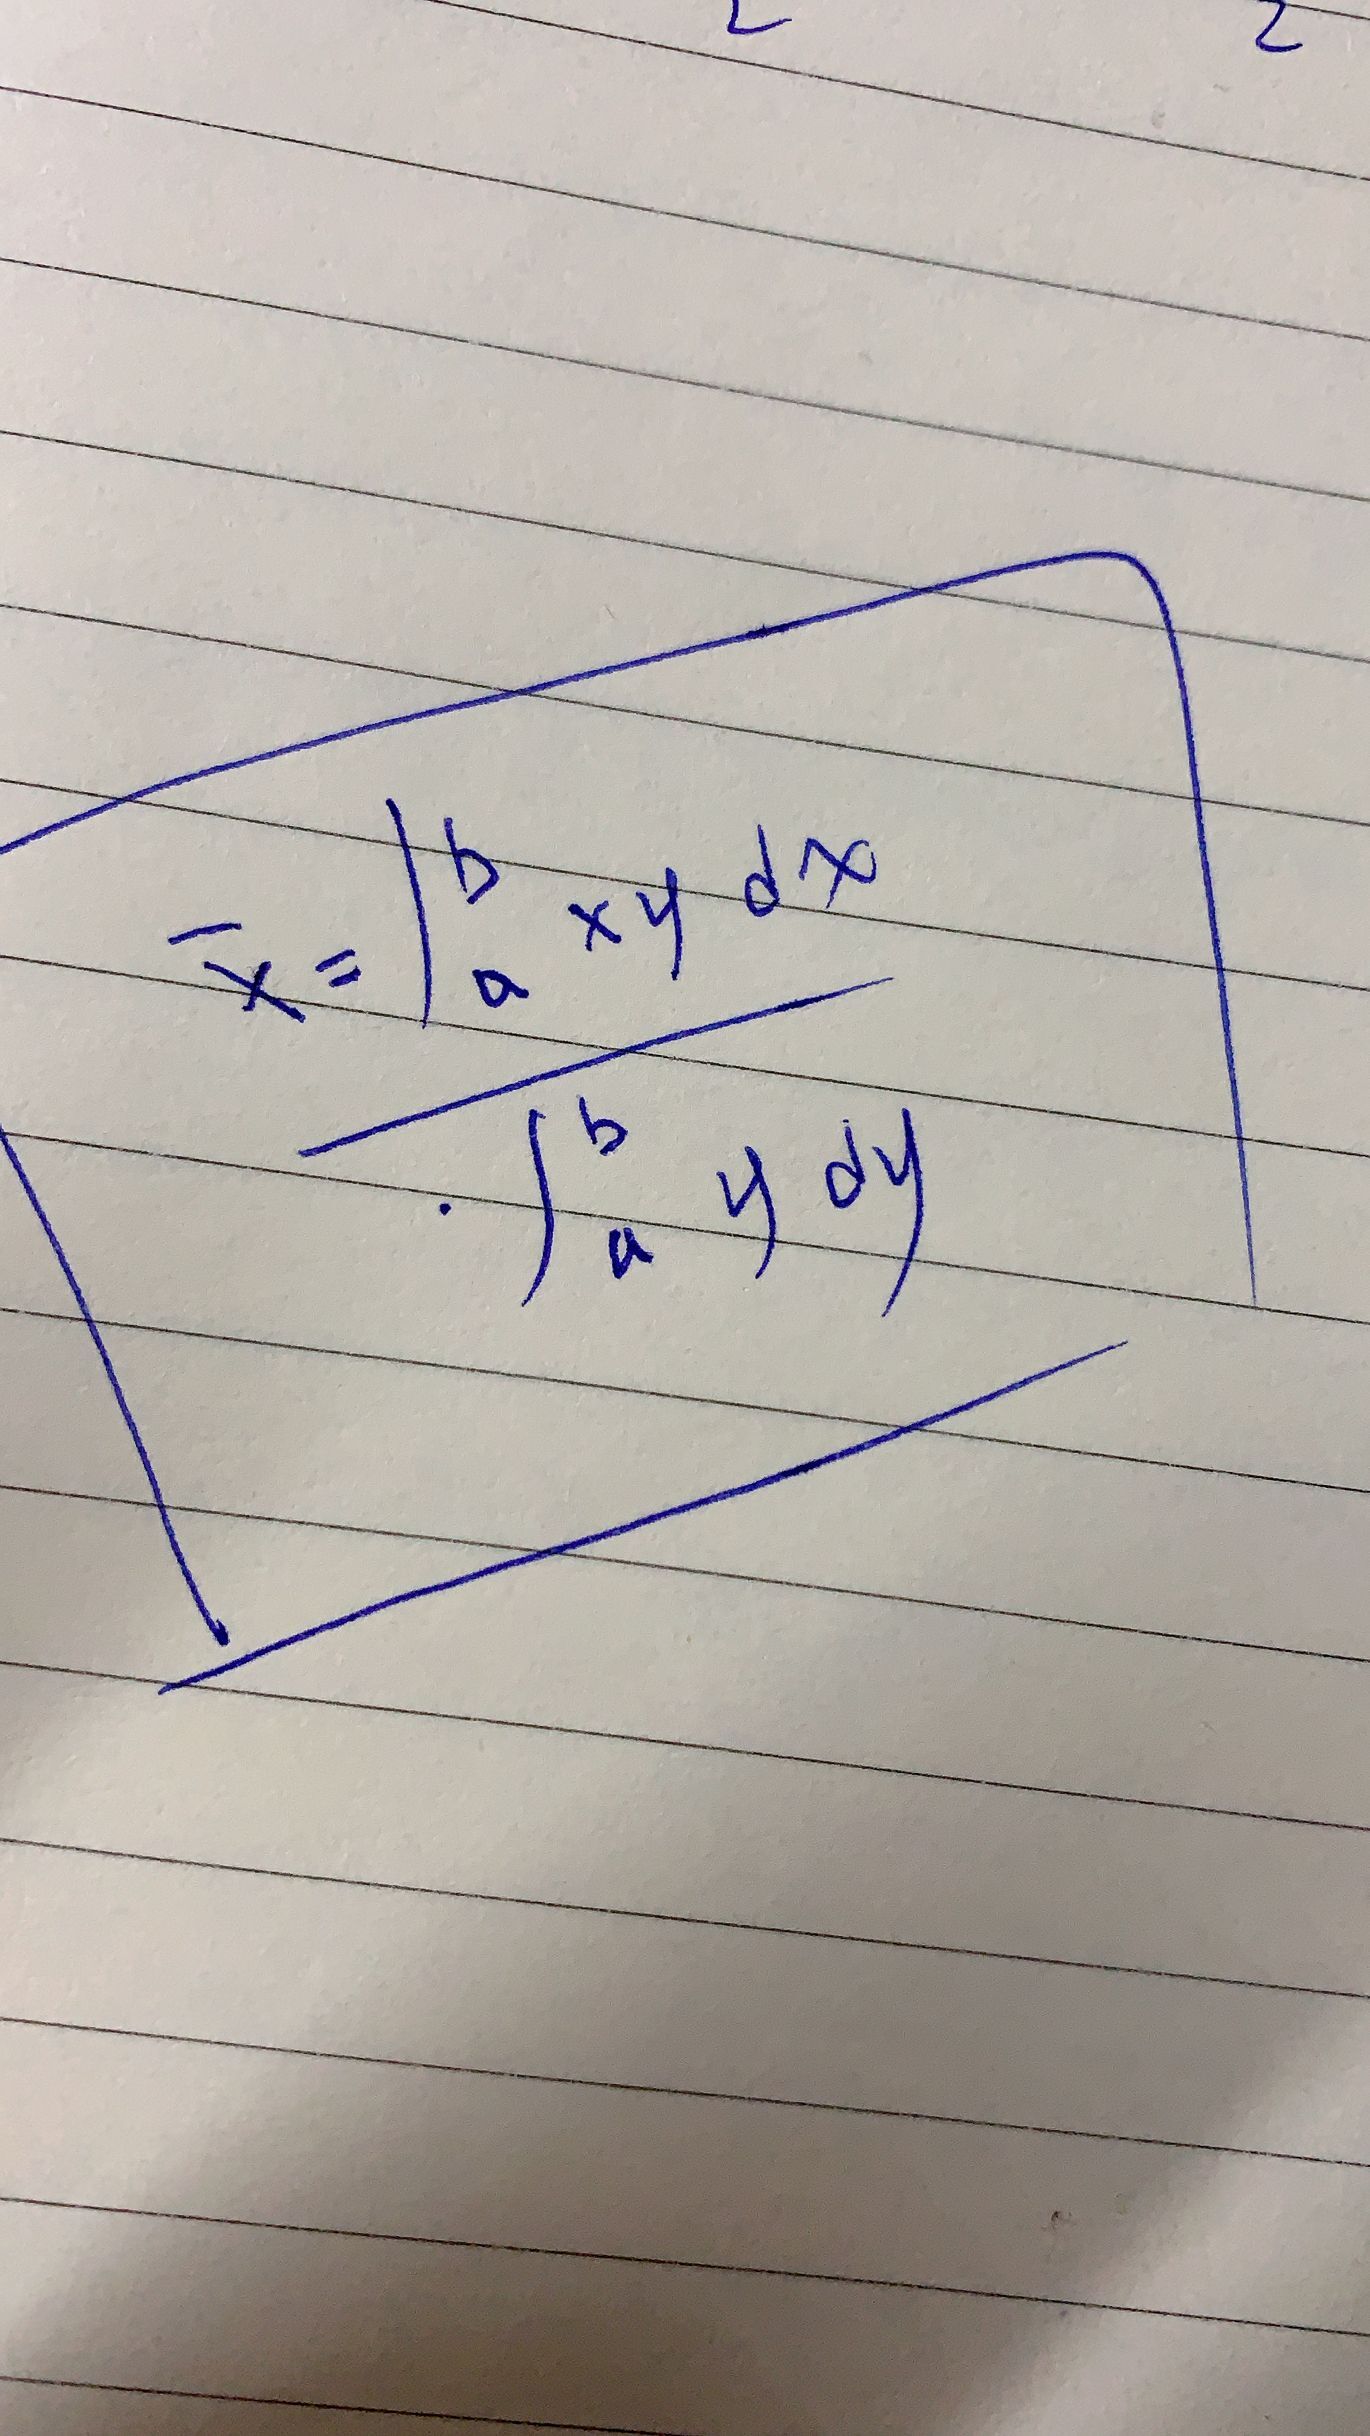 2 2
x̄ = ∫ₐᵇ xy dx
∫ₐᵇ y dy